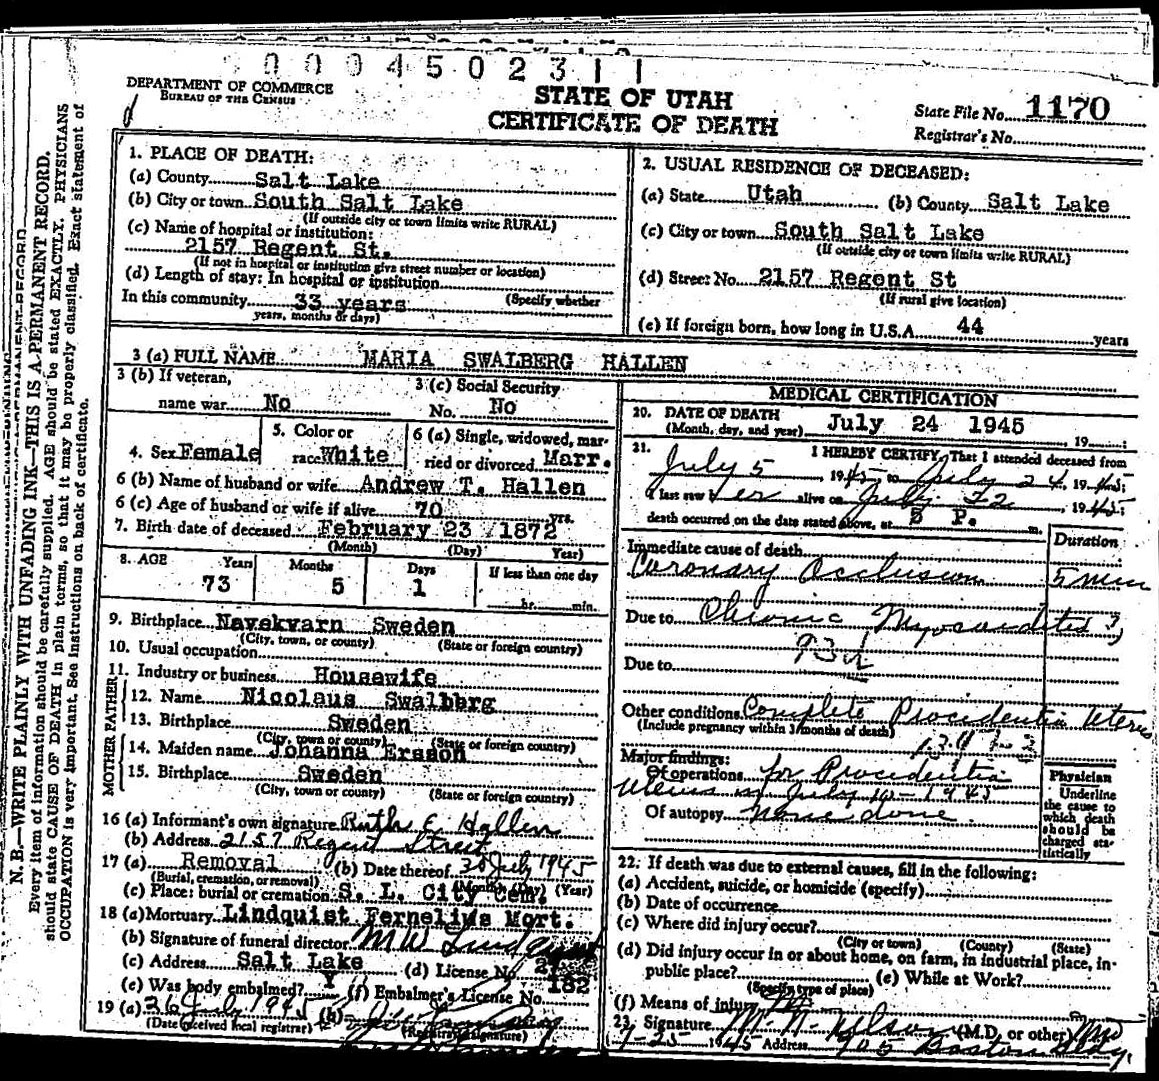 0004502311
DEPARTMENT OF COMMERCE
BUREAU OF THE CENSUS
STATE OF UTAH
CERTIFICATE OF DEATH
State File No. 1170
Registrar's No.
N. B.—WRITE PLAINLY WITH UNFADING INK—THIS IS A PERMANENT RECORD.
Every item of information should be carefully supplied. AGE should be stated EXACTLY. PHYSICIANS
should state CAUSE OF DEATH in plain terms, so that it may be properly classified. Exact statement of
OCCUPATION is very important. See instructions on back of certificate.
1. PLACE OF DEATH:
(a) County Salt Lake
(b) City or town South Salt Lake
(If outside city or town limits write RURAL)
(c) Name of hospital or institution:
2157 Regent St.
(If not in hospital or institution give street number or location)
(d) Length of stay: In hospital or institution
(Specify whether
In this community 33 years
years, months or days)
2. USUAL RESIDENCE OF DECEASED:
(a) State Utah (b) County Salt Lake
(c) City or town South Salt Lake
(If outside city or town limits write RURAL)
(d) Street No. 2157 Regent St
(If rural give location)
(e) If foreign born, how long in U.S.A. 44 years
3 (a) FULL NAME MARIA SWALBERG HALLEN
3 (b) If veteran,
name war No
3 (c) Social Security
No. No
4. Sex Female
5. Color or
race White
6 (a) Single, widowed, mar-
ried or divorced Marr.
6 (b) Name of husband or wife Andrew T. Hallen
6 (c) Age of husband or wife if alive 70 yrs.
7. Birth date of deceased February 23 1872
(Month) (Day) Year)
8. AGE Years Months Days If less than one day
73 5 1 hr. min.
9. Birthplace Navekvarn Sweden
(City, town, or county) (State or foreign country)
10. Usual occupation
11. Industry or business Housewife
FATHER
12. Name Nicolaus Swalberg
13. Birthplace Sweden
(City, town or county) (State or foreign country)
MOTHER
14. Maiden name Johanna Erason
15. Birthplace Sweden
(City, town or county) (State or foreign country)
16 (a) Informant's own signature Ruth E Hallen
(b) Address 2157 Regent Street
17 (a) Removal (b) Date thereof 30 July 1945
(Burial, cremation, or removal) (Month) (Day) (Year)
(c) Place: burial or cremation S. L. City Cem.
18 (a) Mortuary Lindquist Fernelius Mort.
(b) Signature of funeral director M W Lindquist
(c) Address Salt Lake (d) License No.
(e) Was body embalmed? Y (f) Embalmer's License No. 182
19 (a) July 1945 (b)
(Date received local registrar) (Registrar's signature)
MEDICAL CERTIFICATION
20. DATE OF DEATH
(Month, day, and year) July 24 1945 19
21. I HEREBY CERTIFY, That I attended deceased from
July 5, 1945 to July 24, 1945;
I last saw her alive on July 22, 1945;
death occurred on the date stated above, at 5 P. m.
Duration
Immediate cause of death
Coronary Occlusion 5 min
Due to Chronic Myocarditis
93d
Due to
Other conditions Complete Procidentia Uterus
(Include pregnancy within 3 months of death)
Major findings:
Of operations for Procidentia
Uterus on July 10-1945
Of autopsy none done
Physician
Underline
the cause to
which death
should be
charged sta-
tistically
22. If death was due to external causes, fill in the following:
(a) Accident, suicide, or homicide (specify)
(b) Date of occurrence
(c) Where did injury occur?
(City or town) (County) (State)
(d) Did injury occur in or about home, on farm, in industrial place, in-
public place? (e) While at Work?
(Specify type of place)
(f) Means of injury
23. Signature Nelson (M.D. or other) MD
7-25 1945 Address 905 Boston Bldg.